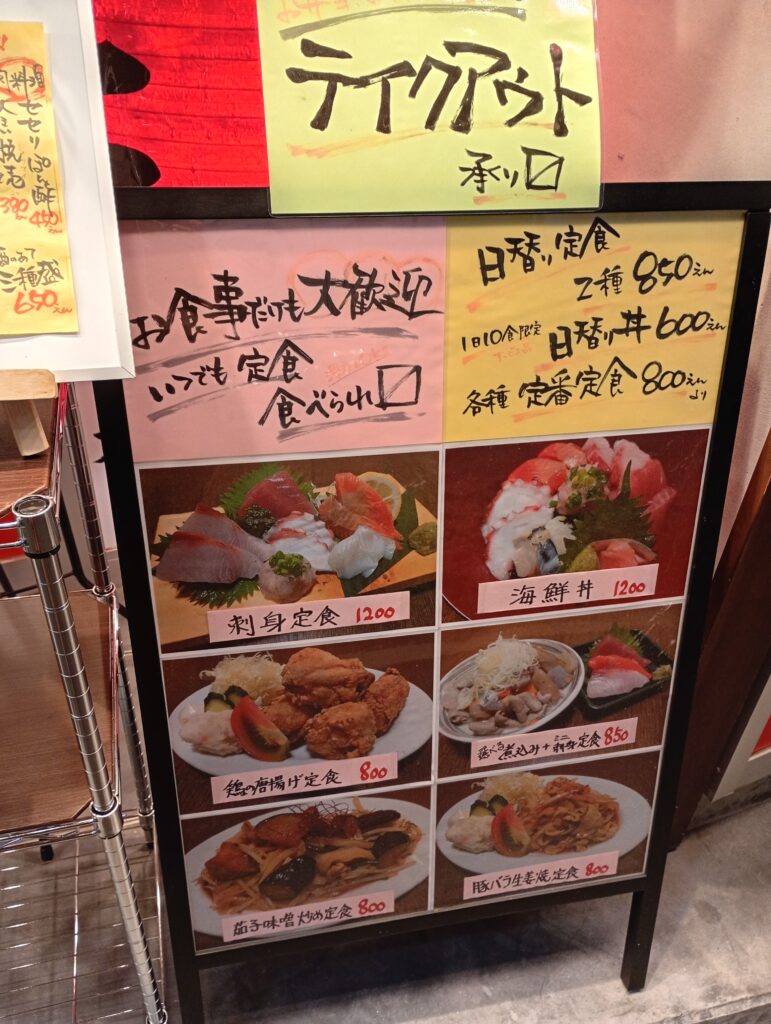 テイクアウト
承り〼
お食事だけも大歓迎
いつでも定食
食べられ〼
日替り定食
2種 850えん
1日10食限定
日替り丼 600えん
各種 定番定食 800えんより
刺身定食 1200
海鮮丼 1200
鶏の唐揚げ定食 800
煮込み+ミニ刺身定食 850
茄子味噌炒め定食 800
豚バラ生姜焼定食 800
セセリぽん酢
390えん
450えん
三種盛
650えん